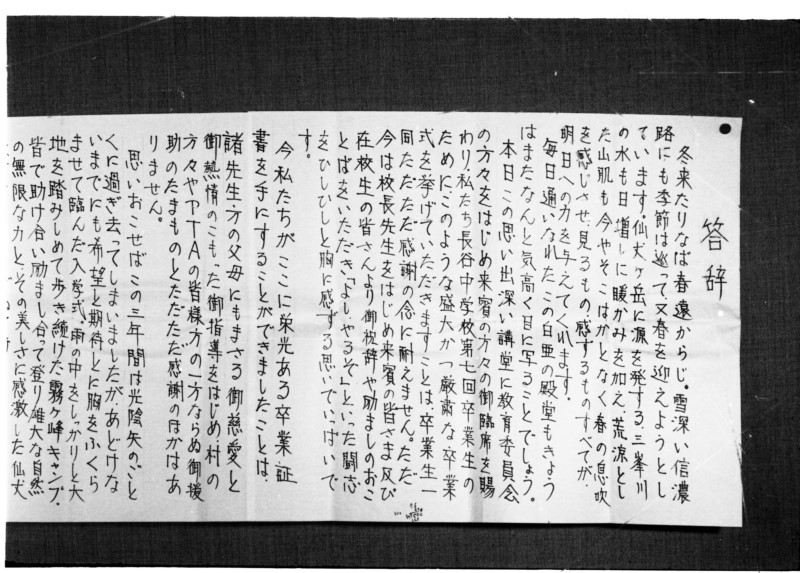 答辞
冬来たりなば春遠からじ。雪深い信濃
路にも季節は巡って又春を迎えようとし
ています仙丈ヶ岳に源を発する、三峯川
の水も日増しに暖かみを加え、荒涼とし
た山肌も今やそこはかとなく、春の息吹
を感じさせ、見るもの、感ずるものすべてが、
明日への力を与えてくれます。
毎日通いなれたこの白亜の殿堂もきょう
はまたなんと気高く目に写ることでしょう。
本日この思い出深い講堂に教育委員会
の方々をはじめ来賓の方々の御臨席を賜
わり、私たち長谷中学校第七回卒業生の
ためにこのような盛大かつ厳粛な、卒業
式を挙げていただきますことは卒業生一
同ただただ感謝の念に耐えません。ただ
今は校長先生をはじめ来賓の皆さま及び
在校生の皆さんより御祝辞や励ましのおこ
とばをいただき「よしやるぞ」といった闘志
をひしひしと胸に感ずる思いでいっぱいで
す。
今私たちがここに栄光ある卒業証
書を手にすることができましたことは、
諸先生方の父母にもまさる御慈愛と
御熱情のこもった御指導をはじめ、村の
方々やPTAの皆様方の一方ならぬ御援
助のたまものとただただ感謝のほかはあ
りません。
思いおこせばこの三年間は光陰矢のごと
くに過ぎ去ってしまいましたがあどけな
いまでにも希望と期待とに胸をふくら
ませて臨んだ入学式、雨の中をしっかりと大
地を踏みしめて歩き続けた霧ヶ峰キャンプ、
皆で助け合い励まし合って登り雄大な自然
の無限な力と、その美しさに感激した仙丈